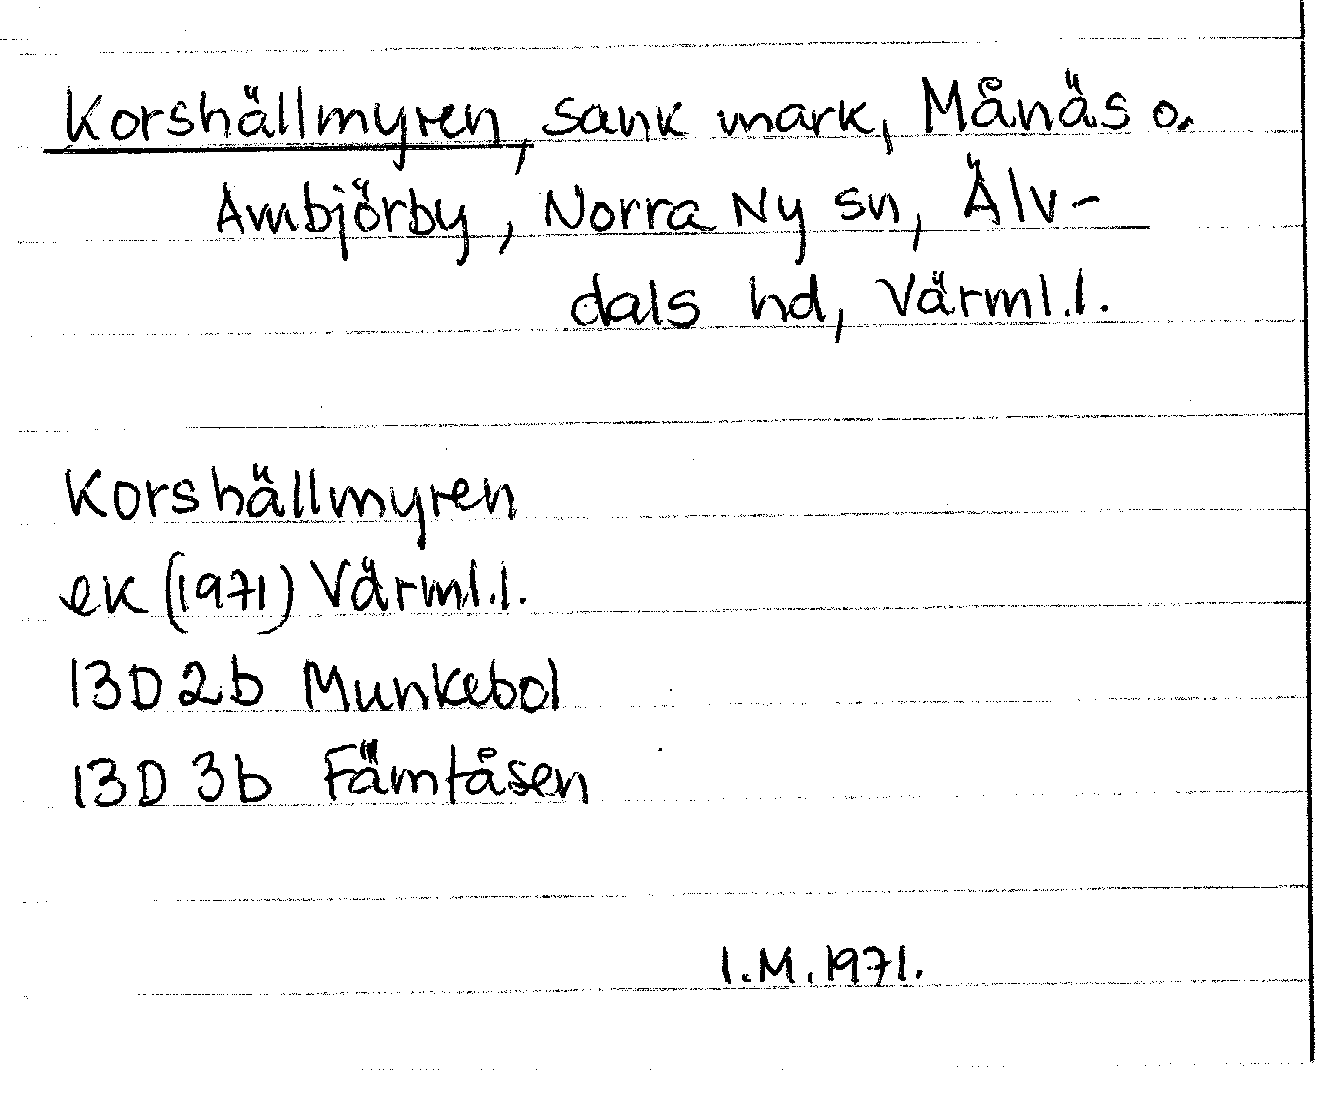 Korshällmyren, sank mark, Månäs o.
Ambjörby, Norra Ny sn, Älv-
dals hd, Värml.l.
Korshällmyren
ek (1971) Värml.l.
13D 2b Munkebol
13D 3b Fämtåsen
I.M.1971.